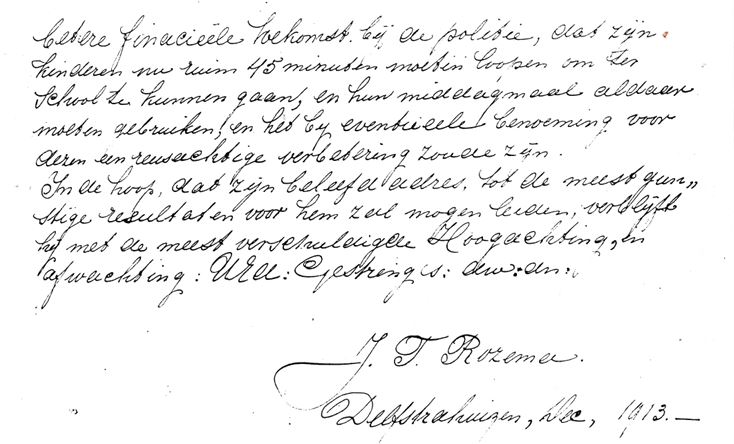 betere finacieële toekomst bij de politie, dat zijn
kinderen nu ruim 45 minuten moeten loopen om ter
School te kunnen gaan, en hun middagmaal aldaar
moeten gebruiken, en het bij eventieeele benoeming voor
deren een reusachtige verbetering zoude zijn.
In de hoop, dat zijn beleefd adres, tot de meest gun„
stige resultaten voor hem zal mogen leiden, verblijft
hij met de meest verschuldigde Hoogachting, in
afwachting: UEd: Gestreng's: dw: dn:
J. T. Rozema.
Delfstrahuizen, Dec, 1913.—